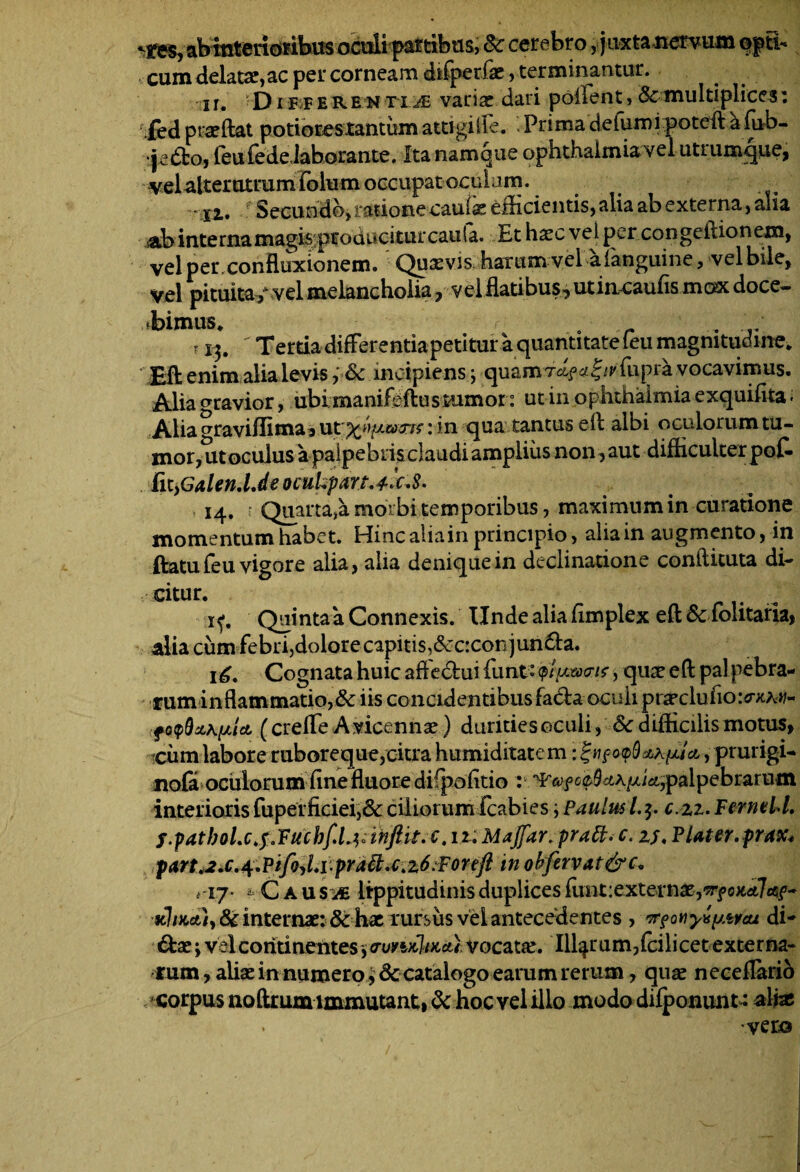 res, ab interioribus oculi partibus, & cerebro, juxta nervum opti-
cum delatæ, ac per corneam dispersæ, terminantur.
11. DIFFERENTIÆ variæ dari possent, & multiplices:
sed præstat potiores tantùm attigisse. Prima desumi potest à sub-
jecto, seu sede laborante. Ita namque ophthalmia vel utrumque,
vel alterutrum solum occupat oculum.
12. Secundò, ratione causæ efficientis, alia ab externa, alia
ab interna magis producitur causa. Et hæc vel per congestionem,
vel per confluxionem. Quævis harum vel à sanguine, vel bile,
vel pituita, vel melancholia, vel flatibus, ut in causis mox doce-
bimus.
13. Tertia differentia petitur à quantitate seu magnitudine.
Est enim alia levis, & incipiens; quam τάραξιν suprà vocavimus.
Alia gravior, ubi manifestus tumor: ut in ophthalmia exquisita.
Alia gravissima, ut χήμωσις: in qua tantus est albi oculorum tu-
mor, ut oculus à palpebris claudi amplius non, aut difficulter pos-
sit, Galen.l.de ocul.part.4.c.8.
14. Quarta, à morbi temporibus, maximum in curatione
momentum habet. Hinc alia in principio, alia in augmento, in
statu seu vigore alia, alia denique in declinatione constituta di-
citur.
15. Quinta à Connexis. Unde alia simplex est & solitaria,
alia cùm febri, dolore capitis, &c: conjuncta.
16. Cognata huic affectui sunt: φίμωσις, quæ est palpebra-
rum inflammatio, & iis concidentibus facta oculi præclusio: σκλη-
ροφθαλμία (cresse Avicennæ) durities oculi, & difficilis motus,
cùm labore ruboreque, citra humiditatem: ξηροφθαλμία, prurigi-
nosa oculorum sine fluore dispositio: Ψωροφθαλμία, palpebrarum
interioris superficiei, & ciliorum scabies; Paulus l.3. c.22. Fernel.l.
5.pathol.c.5. Fuchs.l.3. instit. c.12. Massar. pract. c. 25. Plater. prax.
part.2.c.4. Piso, l.1. pract.c.26. Forest in observat &c.
17. CAUSÆ lippitudinis duplices sunt: externæ, προκαταρ-
κτικαὶ, & internæ: & hæ rursus vel antecedentes, προηγούμεναι di-
ctæ; vel continentes, συνεκτικαὶ vocatæ. Illarum, scilicet externa-
rum, aliæ in numero, & catalogo earum rerum, quæ necessariò
corpus nostrum immutant, & hoc vel illo modo disponunt: aliæ
vero